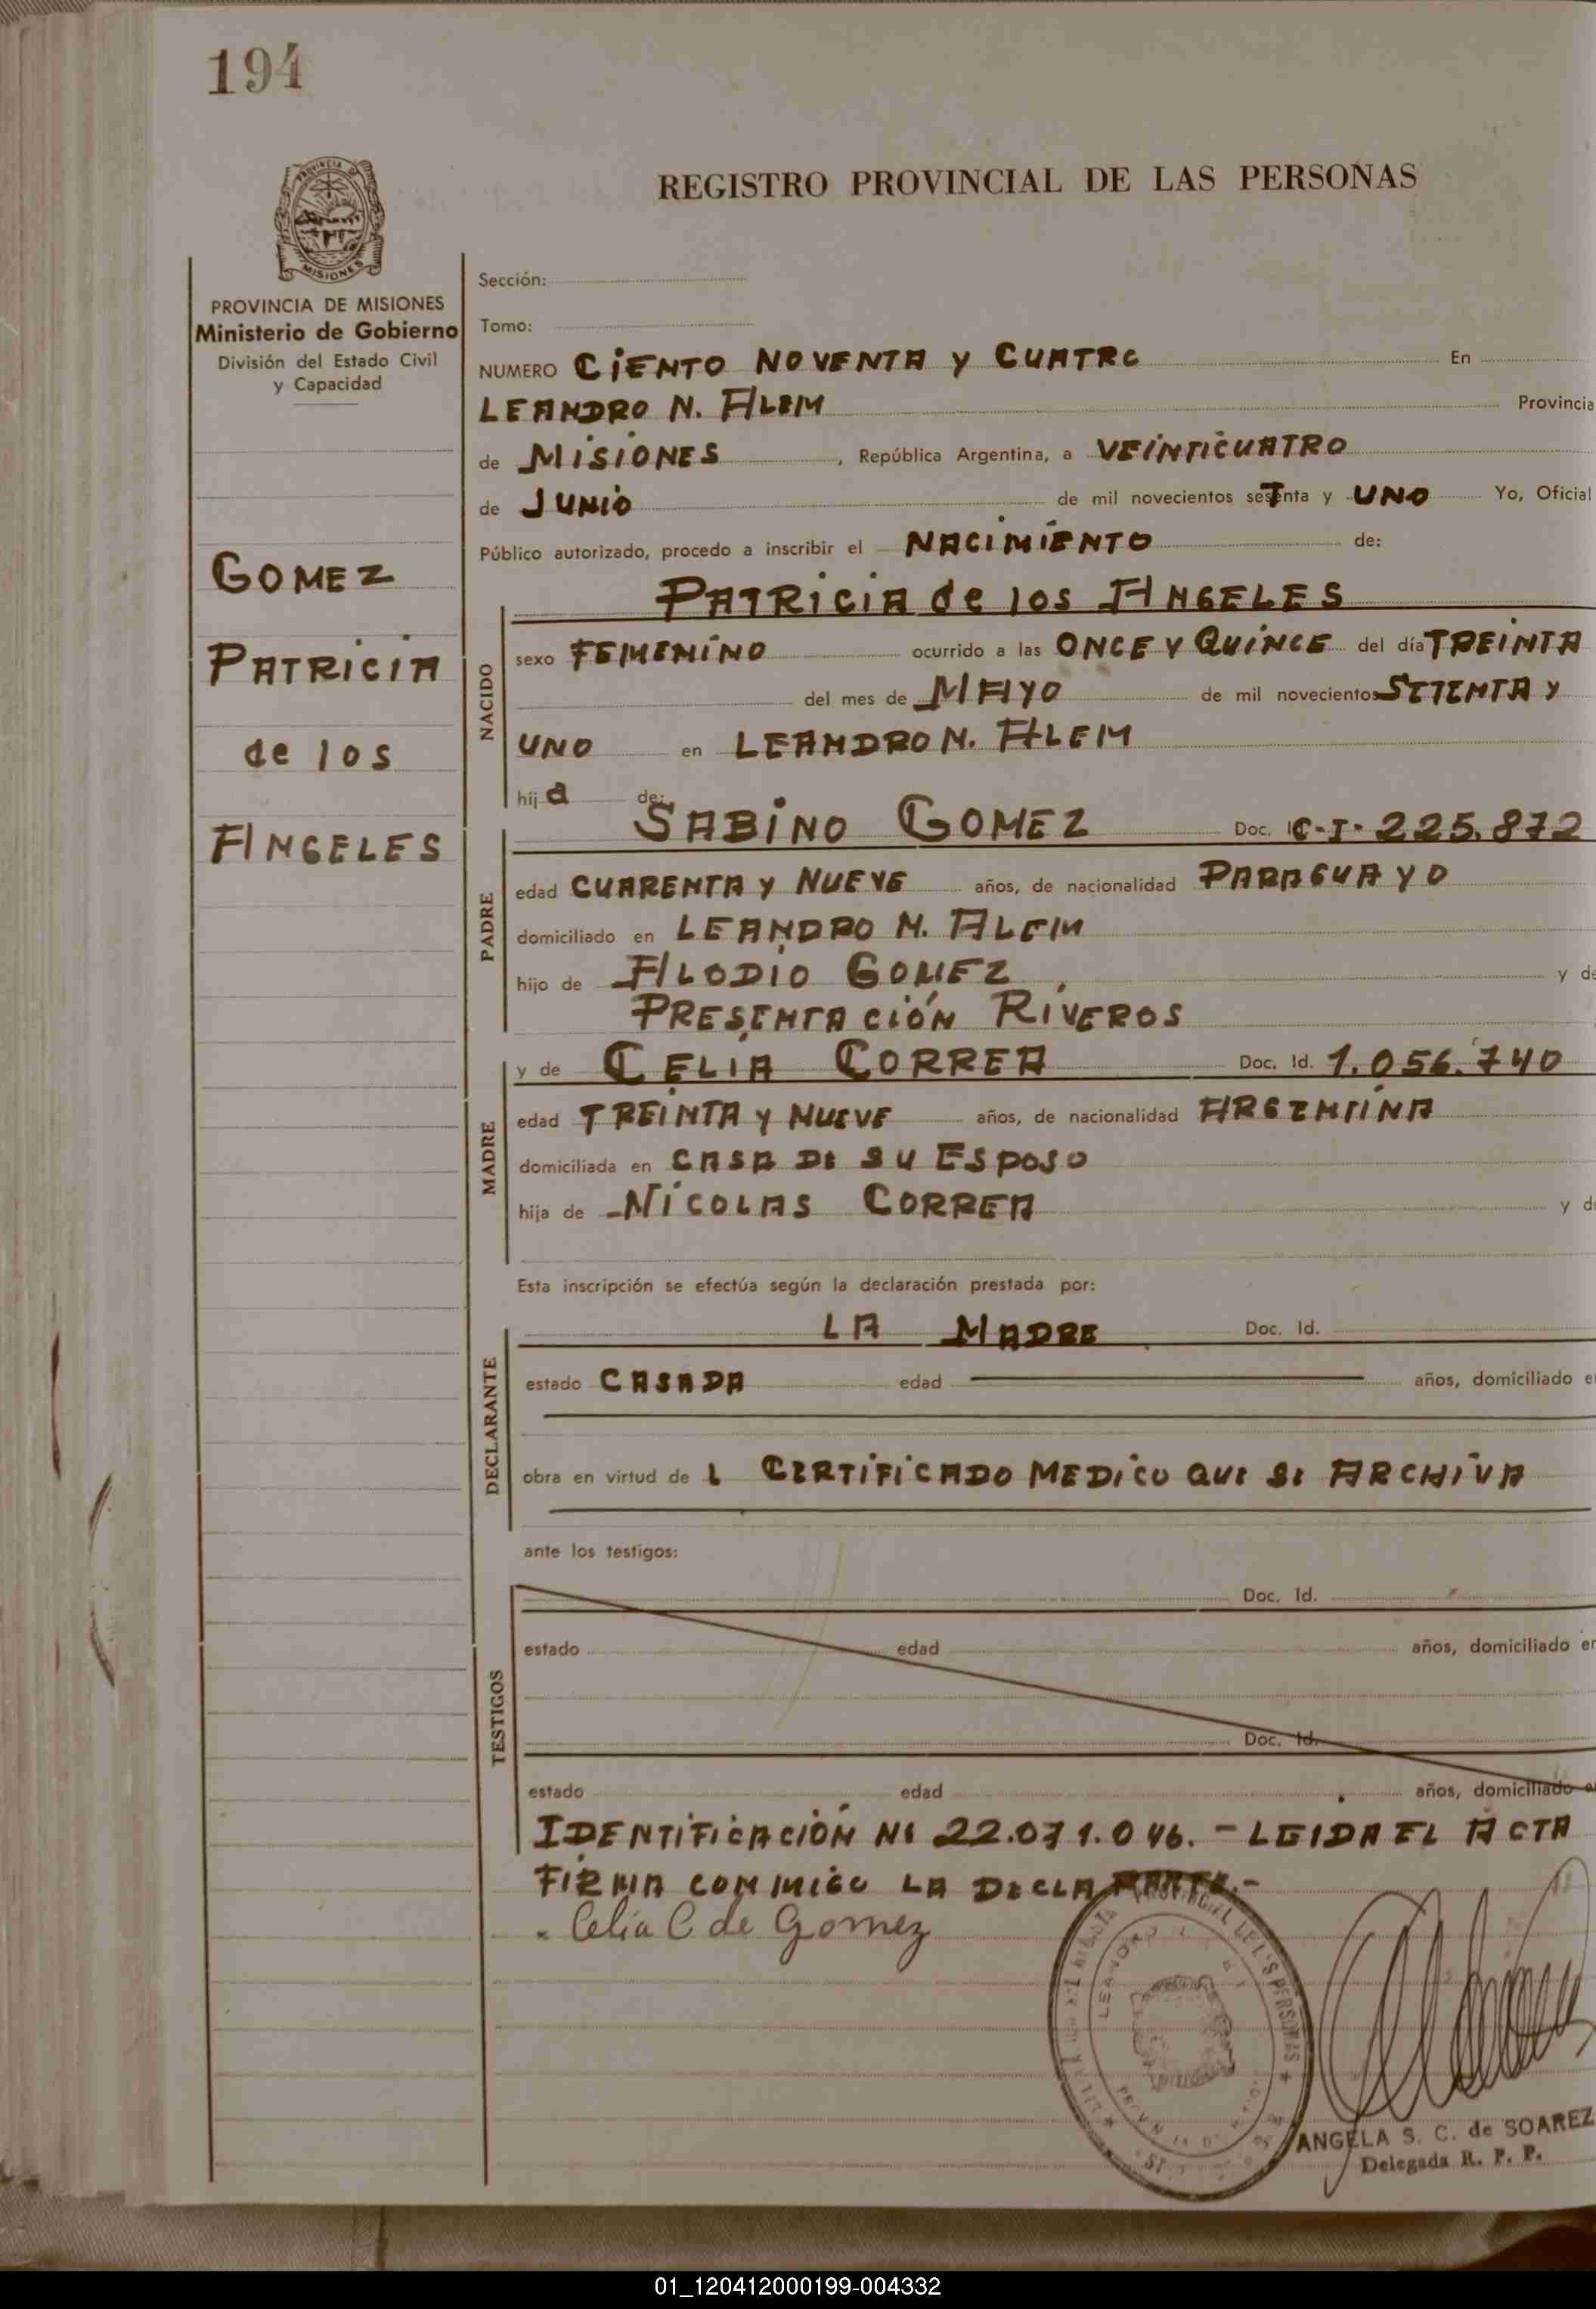 194
REGISTRO PROVINCIAL DE LAS PERSONAS
PROVINCIA DE MISIONES
Ministerio de Gobierno
División del Estado Civil
y Capacidad
GOMEZ
PATRICIA
de los
ANGELES
Sección:
Tomo:
NUMERO CIENTO NOVENTA y CUATRO En
LEANDRO N. ALEM Provincia
de MISIONES, República Argentina, a VEINTICUATRO
de JUNIO de mil novecientos seTenta y UNO Yo, Oficial
Público autorizado, procedo a inscribir el NACIMIENTO de:
NACIDO
PATRICIA de los ANGELES
sexo FEMENINO ocurrido a las ONCE y QUINCE del día TREINTA
del mes de MAYO de mil novecientos SETENTA y
UNO en LEANDRO N. ALEM
hija de:
PADRE
SABINO GOMEZ Doc. C-I- 225.872
edad CUARENTA y NUEVE años, de nacionalidad PARAGUAYO
domiciliado en LEANDRO N. ALEM
hijo de ALODIO GOMEZ y de
PRESENTACIÓN RIVEROS
MADRE
y de CELIA CORREA Doc. Id. 1.056.740
edad TREINTA y NUEVE años, de nacionalidad ARGENTINA
domiciliada en CASA DE SU ESPOSO
hija de NICOLAS CORREA y de
Esta inscripción se efectúa según la declaración prestada por:
DECLARANTE
LA MADRE Doc. Id.
estado CASADA edad años, domiciliado en
obra en virtud de L CERTIFICADO MEDICO QUE SE ARCHIVA
ante los testigos:
TESTIGOS
Doc. Id.
estado edad años, domiciliado en
Doc. Id.
estado edad años, domiciliado en
IDENTIFICACIÓN Nº 22.071.046. - LEIDA EL ACTA
FIRMA CONMIGO LA DECLARANTE.-
Celia C de Gomez
ANGELA S. C. de SOAREZ
Delegada R. P. P.
01_120412000199-004332